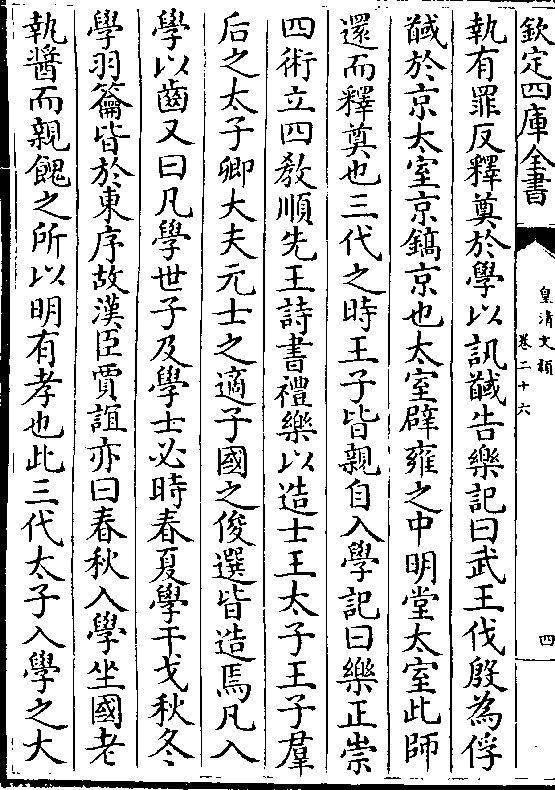 欽定四庫全書
皇清文穎
卷二十六
四
執有罪反釋奠於學以訊馘告樂記曰武王伐殷為俘
馘於京太室京鎬京也太室辟雍之中明堂太室此師
還而釋奠也三代之時王子皆親自入學記曰樂正崇
四術立四教順先王詩書禮樂以造士王太子王子羣
后之太子卿大夫元士之適子國之俊選皆造焉凡入
學以齒又曰凡學世子及學士必時春夏學干戈秋冬
學羽籥皆於東序故漢臣賈誼亦曰春秋入學坐國老
執醬而親餽之所以明有孝也此三代太子入學之大